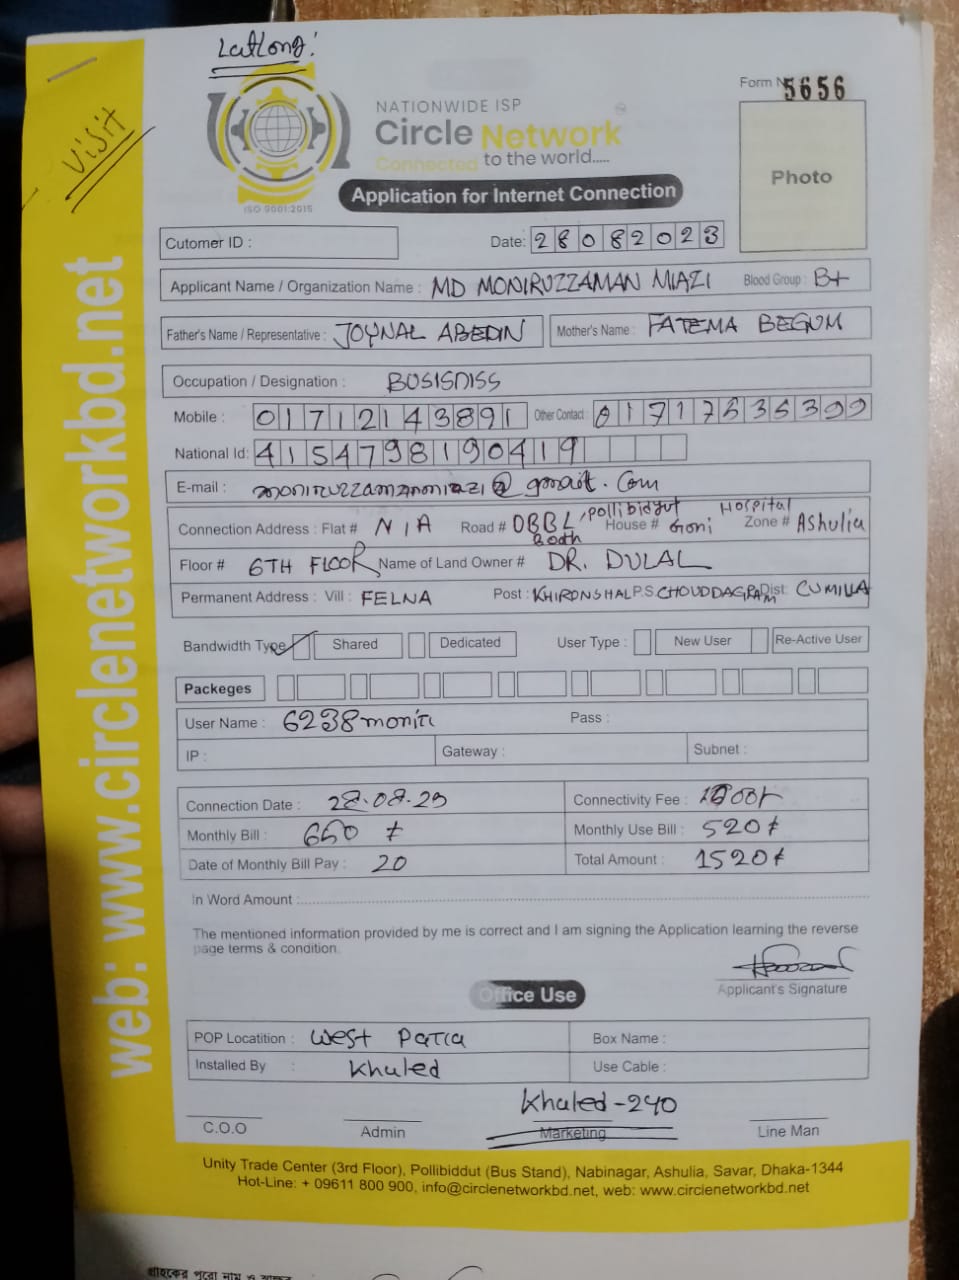 LatLong:
Visit
Form N 5656
NATIONWIDE ISP
Circle Network
Connected to the world.....
ISO 9001:2015
Application for Internet Connection
Photo
Cutomer ID :
Date: 28082023
Applicant Name / Organization Name : MD MONIRUZZAMAN MIAZI Blood Group : B+
Father's Name / Representative : JOYNAL ABEDIN Mother's Name : FATEMA BEGUM
Occupation / Designation : BUSISNISS
Mobile : 01712143891 Other Contact :
National Id: 4154798190419
E-mail : moniruzzamanmiazi@gmail.com
Connection Address : Flat # N/A Road # DBBL Booth, Pollibidyut House # Goni Hospital Zone # Ashulia
Floor # 6TH FLOOR Name of Land Owner # DR. DULAL
Permanent Address : Vill : FELNA Post : KHIRONSHAL P.S CHOUDDAGRAM Dist: CUMILLA
Bandwidth Type Shared Dedicated User Type : New User Re-Active User
Packeges
User Name : 6238monir Pass :
IP : Gateway : Subnet :
Connection Date : 28.08.23 Connectivity Fee :
Monthly Bill : Monthly Use Bill : 520৳
Date of Monthly Bill Pay : 20 Total Amount : 1520৳
In Word Amount :
The mentioned information provided by me is correct and I am signing the Application learning the reverse
page terms & condition.
Applicant's Signature
Office Use
POP Locatition : West Para Box Name :
Installed By : Khaled Use Cable :
Khaled-240
C.O.O Admin Marketing Line Man
Unity Trade Center (3rd Floor), Pollibiddut (Bus Stand), Nabinagar, Ashulia, Savar, Dhaka-1344
Hot-Line: + 09611 800 900, info@circlenetworkbd.net, web: www.circlenetworkbd.net
web: www.circlenetworkbd.net